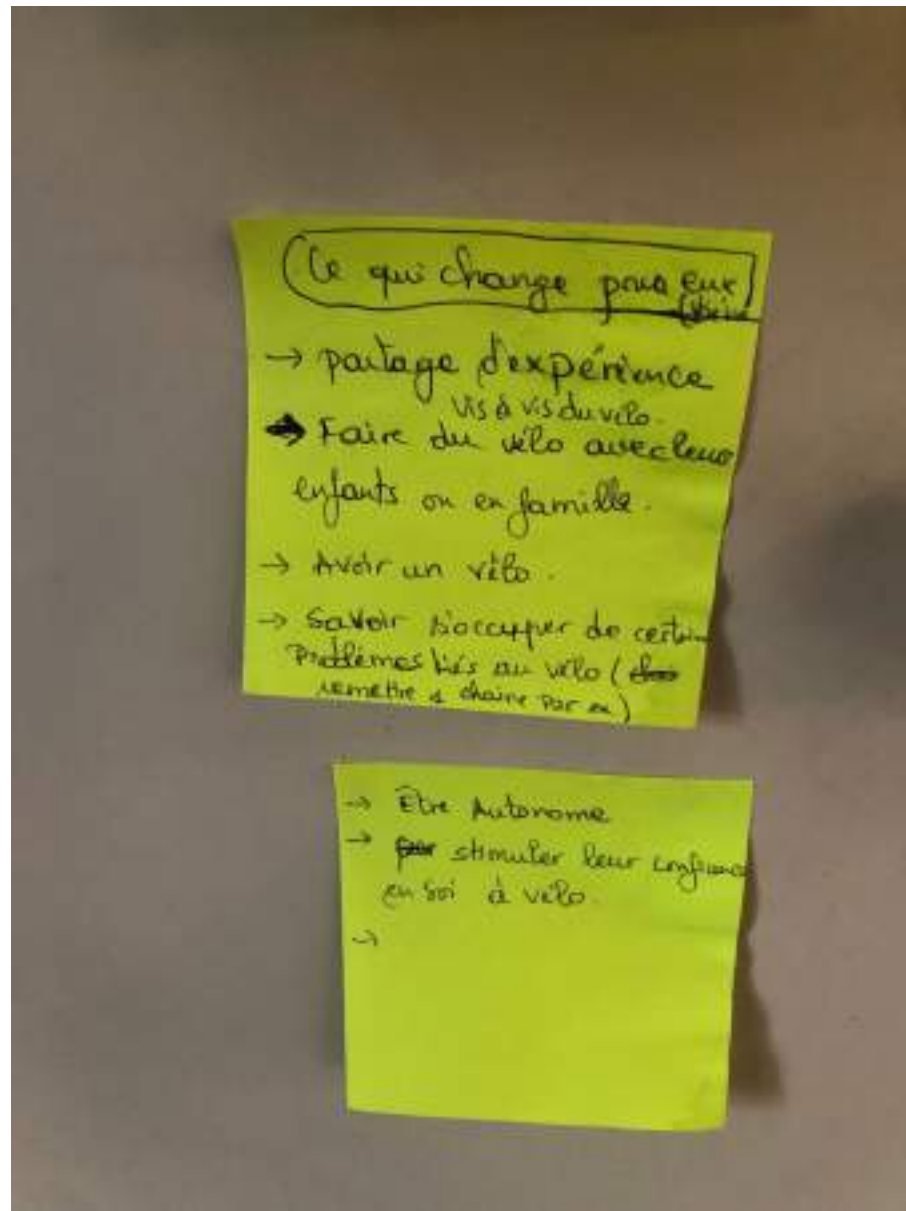 Ce qui change pour eux
→ partage d'expérience
vis à vis du vélo.
→ Faire du vélo avec leurs
enfants ou en famille.
→ Avoir un vélo.
→ Savoir s'occuper de certain
Problèmes liés au vélo (
remettre 1 chaine par ex)
→ Être Autonome
→ stimuler leur confiance
en soi à vélo.
→